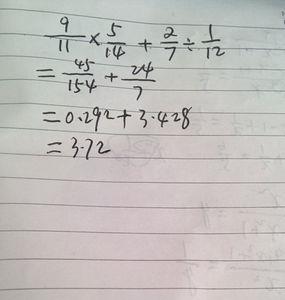 9/11 × 5/14 + 2/7 ÷ 1/12
= 45/154 + 24/7
= 0.292 + 3.428
= 3.72